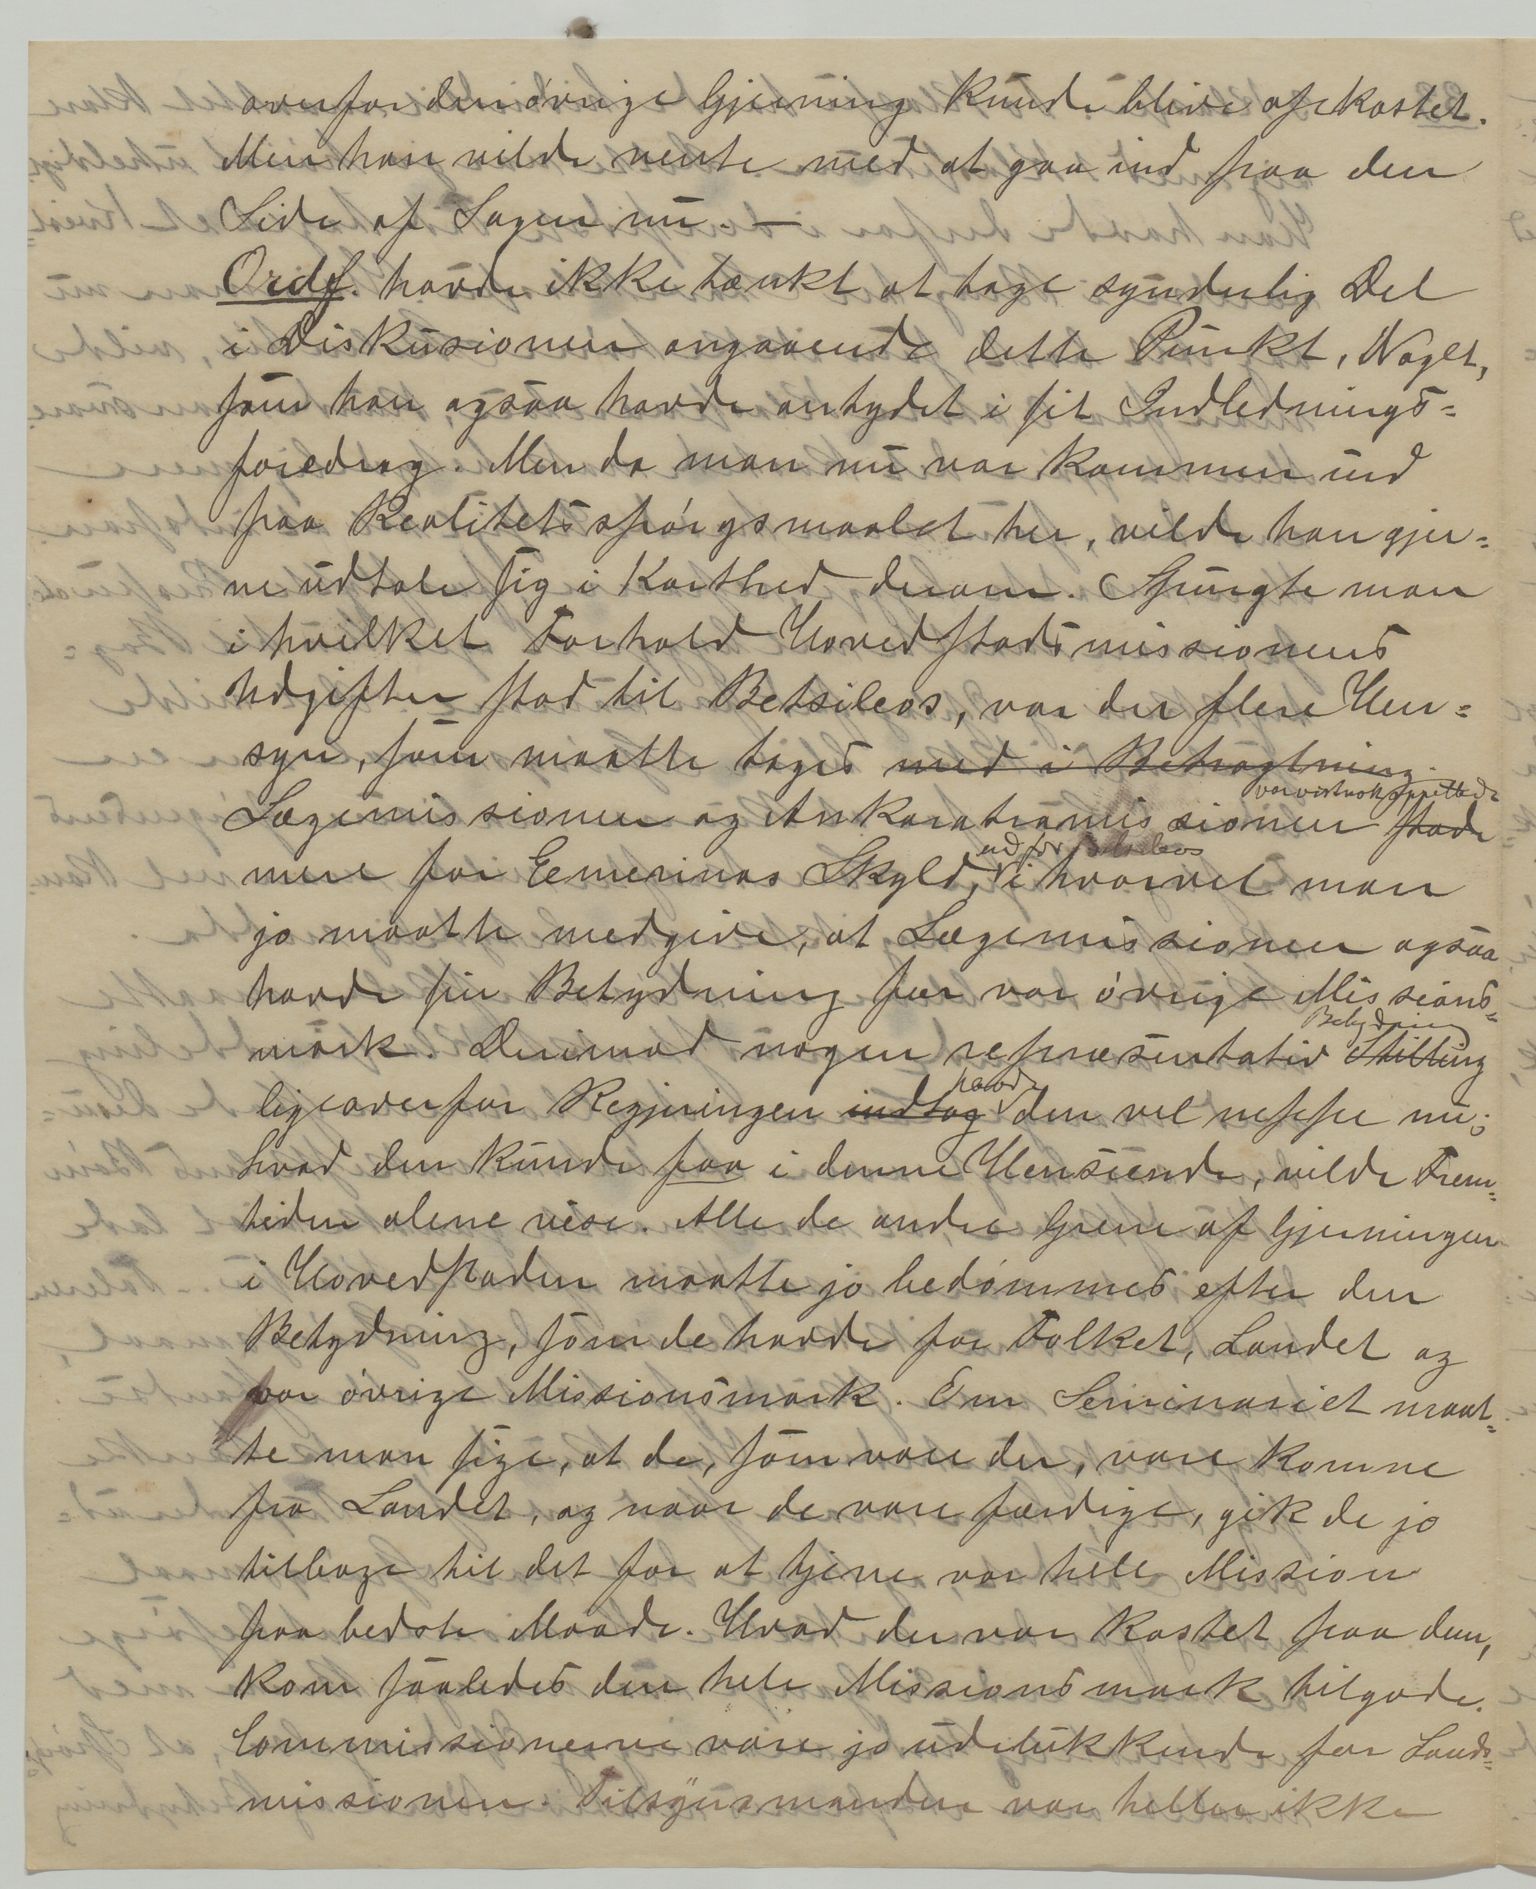 overfor den øvrige Gjerning kunde blive afkastet.
Men han vilde vente med at gaa ind paa den
Side af Sagen nu. —
Ordf. havde ikke tænkt at tage synderlig Del
i Diskusionen angaaende dette Punkt, Noget,
som han ogsaa havde antydet i sit Indlednings=
foredrag. Men da man nu var kommen ind
paa Realitetsspørgsmaalet her, vilde han gjer=
ne udtale sig i Korthed derom. Spurgte man
i hvilket Forhold Hovedstadsmissionens
Udgifter stod til Betsileos, var der flere Hen=
syn, som maatte tages med i Betragtning.
var vistnok oprettede
Lægemissionen og Ankaratramissionen stode
ud for Betsileos
mere for Eemerinas Skyld, i hvorvel man
jo maatte medgive, at Lægemissionen ogsaa
havde sin Betydning for vor øvrige Missions=
Betydning
mark. Derimod nogen repræsentativ Stilling
havde
ligeoverfor Regjeringen indtog den vel neppe nu;
hvad den kunde faa i denne Henseende, vilde Frem=
tiden alene vise. Alle de andre Grene af Gjerningen
i Hovedstaden maatte jo bedømmes efter den
Betydning, som de havde for Folket, Landet og
vor øvrige Missionsmark. Om Seminariet maat=
te man sige, at de, som vare der, vare komne
fra Landet, og naar de vare færdige, gik de jo
tilbage til det for at tjene vor hele Mission
paa bedste Maade. Hvad der var kostet paa dem,
kom saaledes den hele Missionsmark tilgode.
Commissionerne vare jo udelukkende for Lands=
missionen. Tilsynsmanden var heller ikke